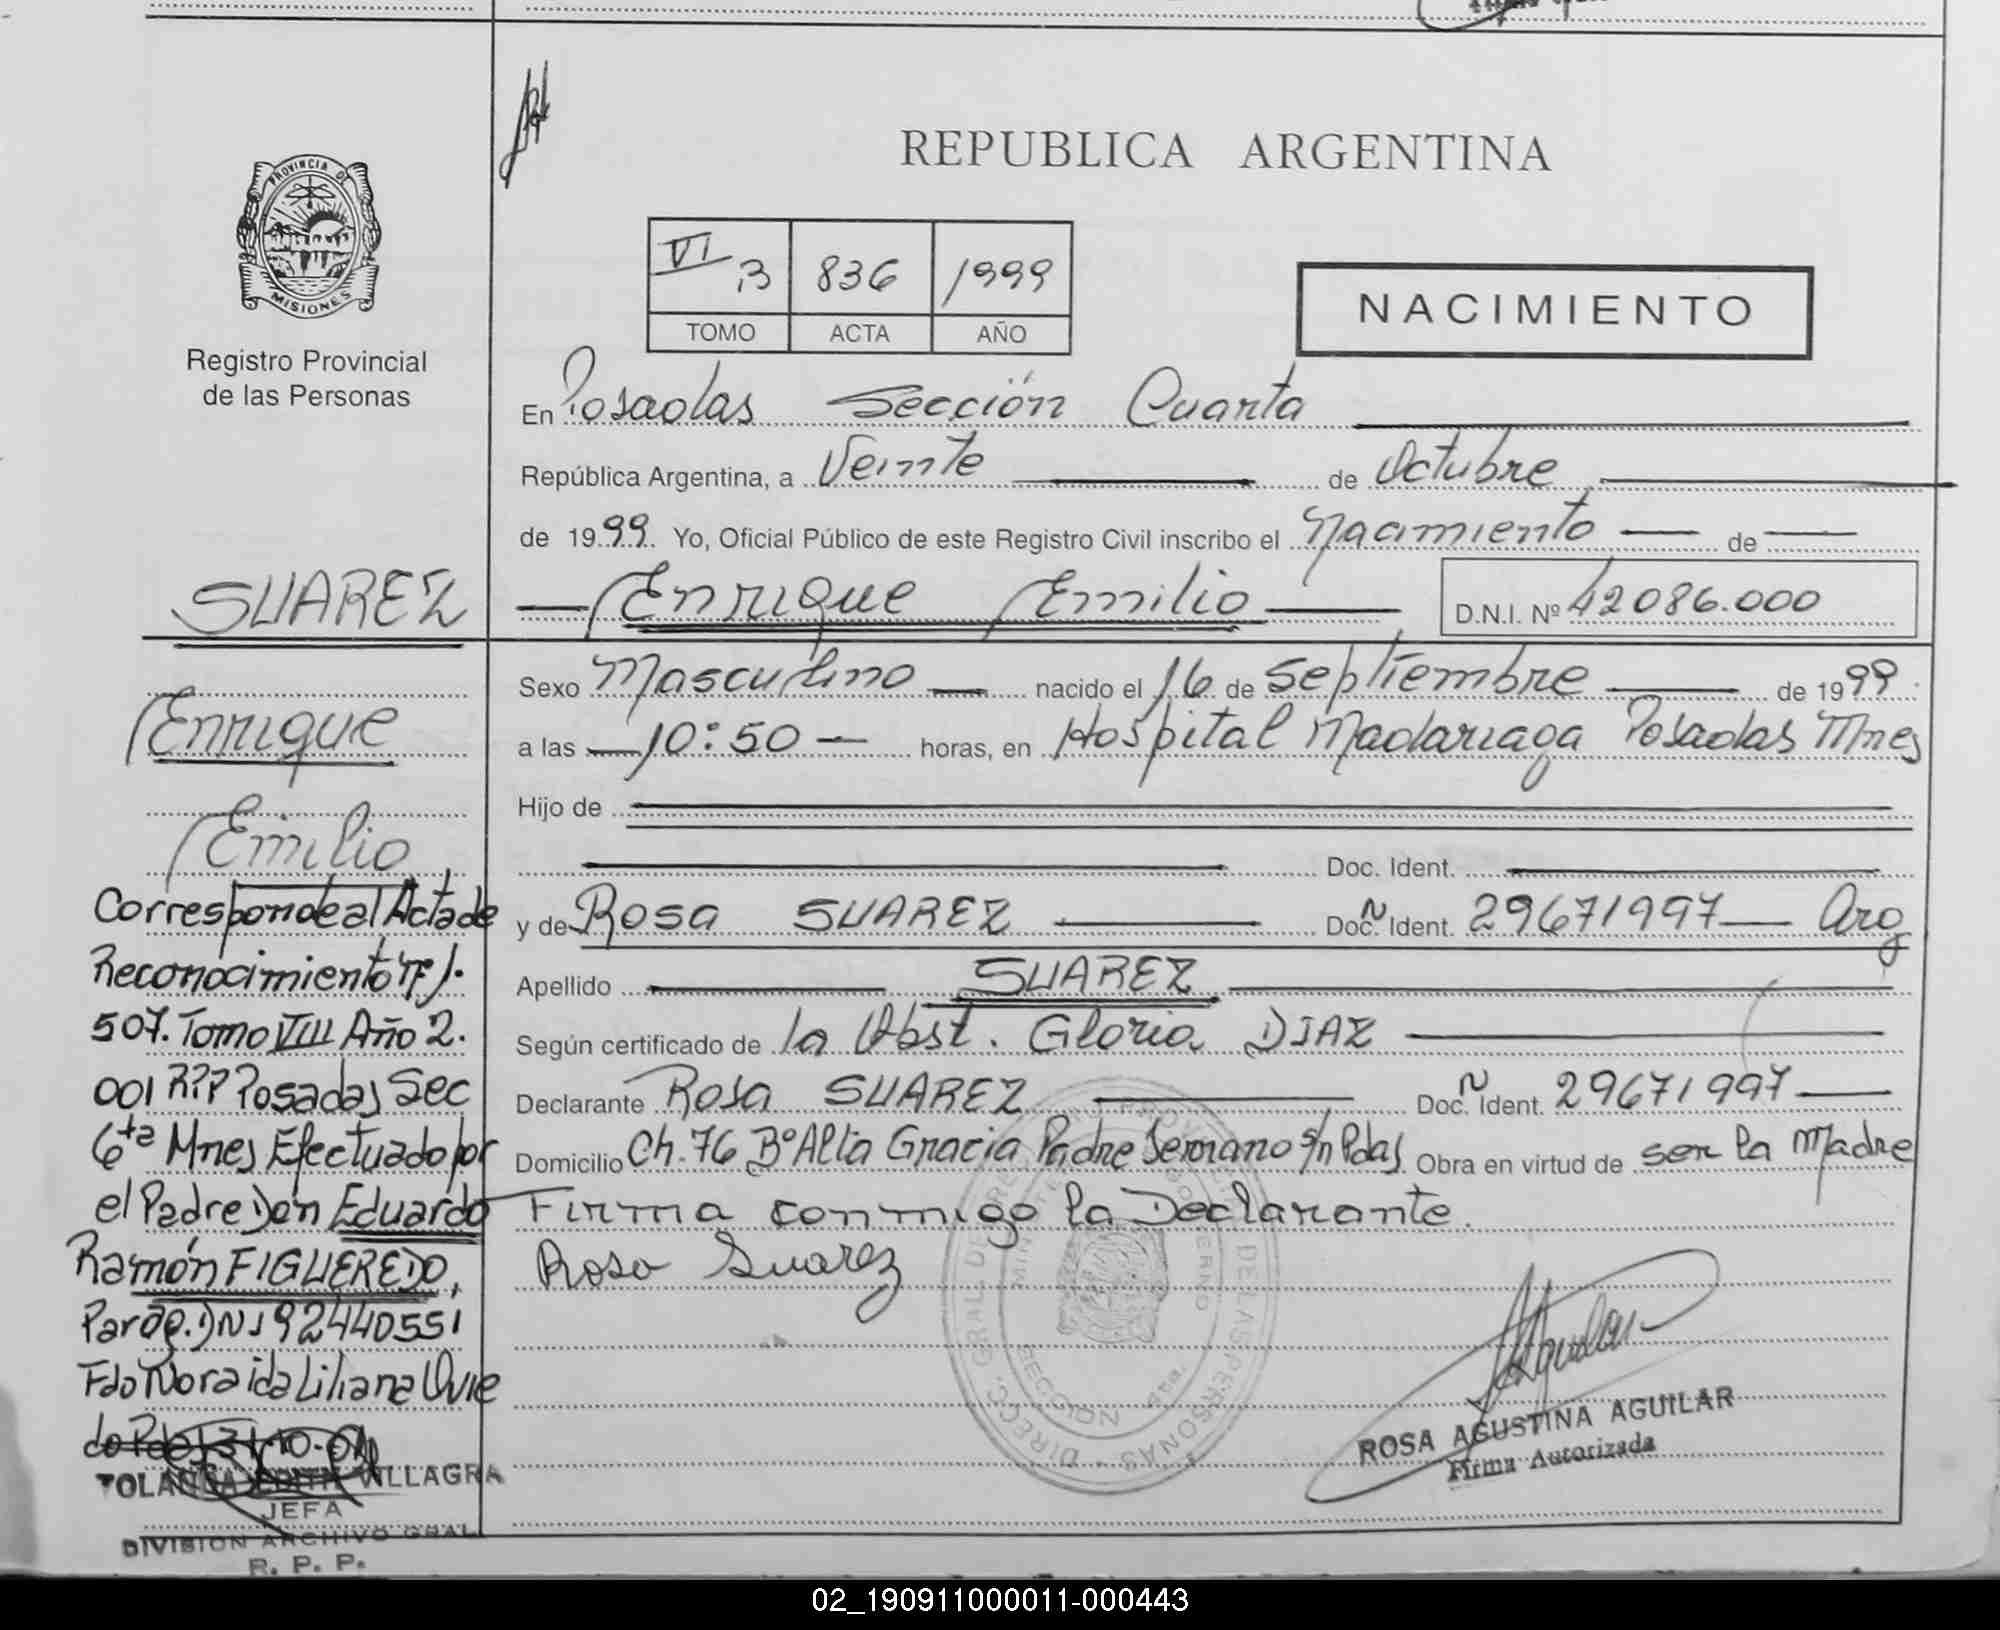 REPUBLICA ARGENTINA
PROVINCIA DE
MISIONES
Registro Provincial
de las Personas
VI 3 836 1999
TOMO ACTA AÑO
NACIMIENTO
En Posadas Sección Cuarta
República Argentina, a Veinte de Octubre
de 1999. Yo, Oficial Público de este Registro Civil inscribo el Nacimiento de
Enrique Emilio D.N.I. Nº 42086.000
Sexo Masculino nacido el 16 de Septiembre de 1999
a las 10:50 horas, en Hospital Madariaga Posadas Mnes
Hijo de
Doc. Ident.
y de Rosa SUAREZ Doc. Ident. 29671997 Arg
Apellido SUAREZ
Según certificado de la Obst. Gloria DIAZ
Declarante Rosa SUAREZ Doc. Ident. 29671997
Domicilio Ch. 76 Bº Alta Gracia Padre Serrano s/n Pdas. Obra en virtud de ser la Madre
Firma conmigo la Declarante.
Rosa Suarez
ROSA AGUSTINA AGUILAR
Firma Autorizada
SUAREZ
Enrique
Emilio
Corresponde al Acta de
Reconocimiento Nº
507. Tomo VIII Año 2.
001 RPP Posadas Sec
6ta Mnes Efectuado por
el Padre Don Eduardo
Ramón FIGUEREDO,
Parag. DNI 92440551
Fdo Noraida Liliana Ovie
do Pdas 31-10-01
YOLANDA EDITH VILLAGRA
JEFA
DIVISION ARCHIVO GRAL
R. P. P.
02_190911000011-000443